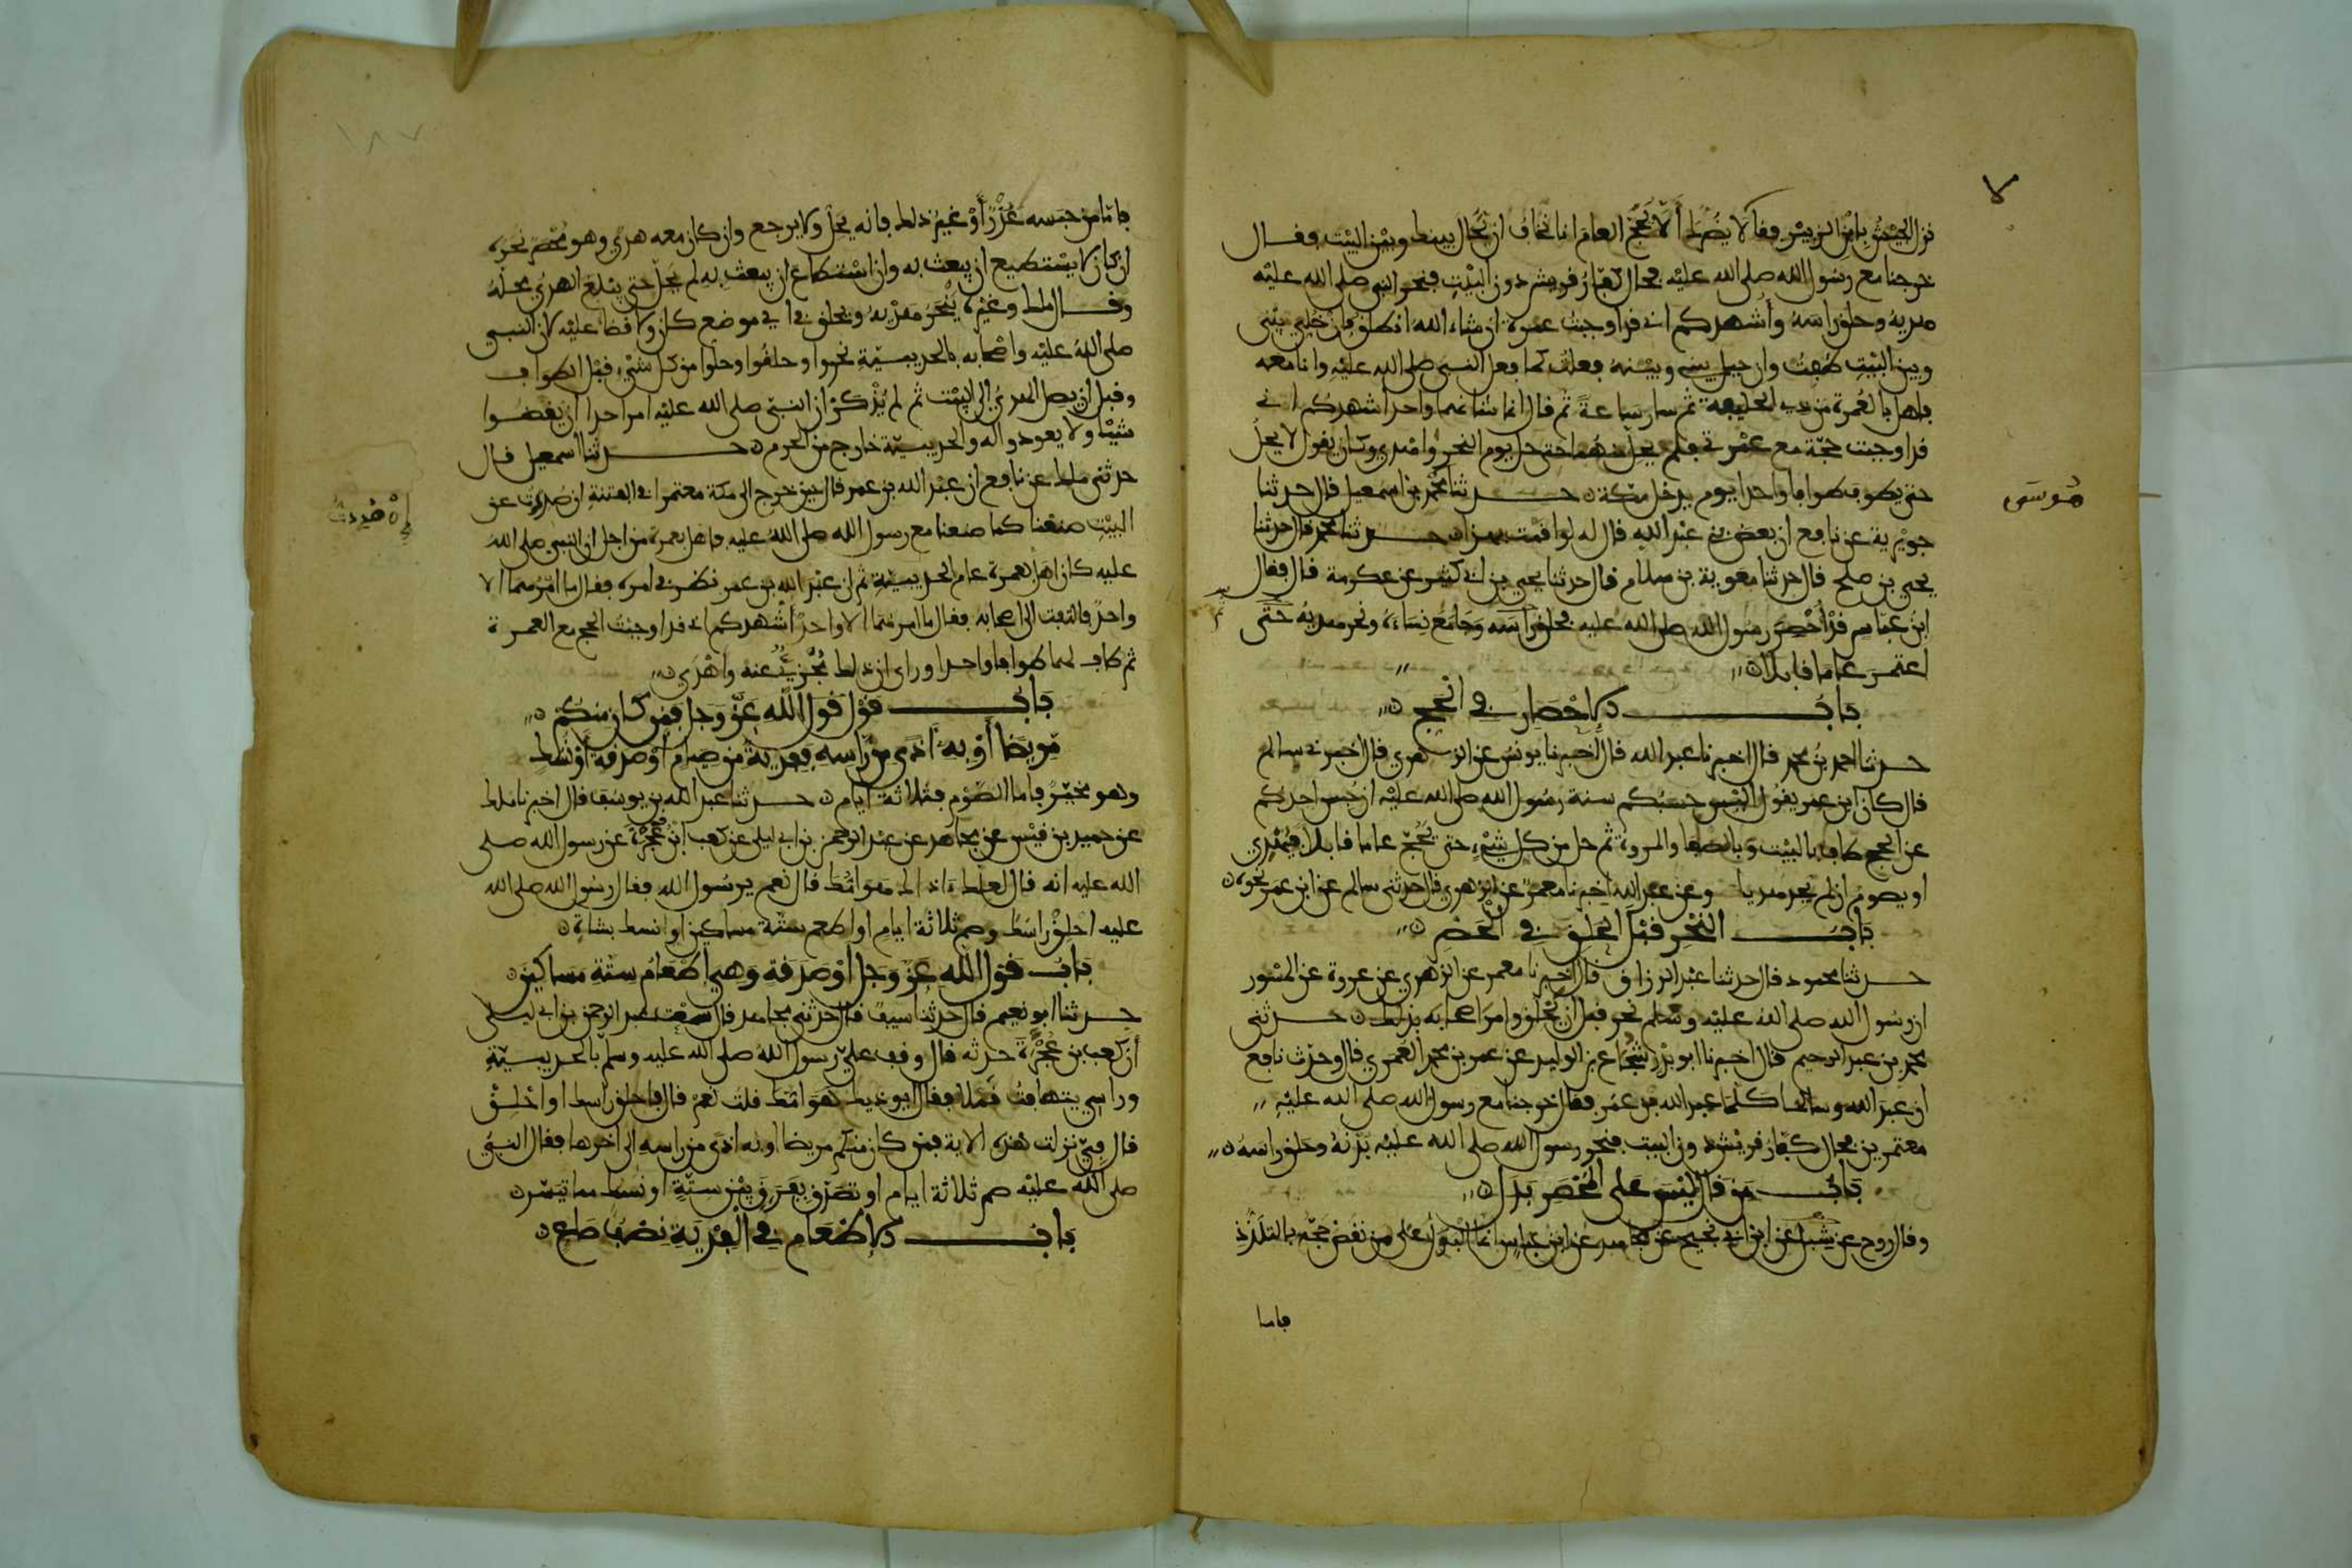 لا
نزل الجيش بابن الزبير فقالا لا يضرك ألا تحج العام انا نخاف ان يحال بينك وبين البيت فقال
خرجنا مع رسول الله صلى الله عليه فحال كفار قريش دون البيت فنحر النبي صلى الله عليه
هديه وحلق راسه وأشهدكم اني قد اوجبت عمرة ان شاء الله انطلق فان خلي بيني
وبين البيت طفت وان حيل بيني وبينه فعلت كما فعل النبي صلى الله عليه وانا معه
فاهل بالعمرة من ذي الحليفة ثم سار ساعة ثم قال انما شانهما واحد اشهدكم اني
قد اوجبت حجة مع عمرتي فلم يحل منهما حتى حل يوم النحر واهدى وكان يقول لا يحل
حتى يطوف طوافا واحدا يوم يدخل مكة حدثنا محمد بن اسمعيل قال حدثنا
موسى
جويرية عن نافع ان بعض بني عبد الله قال له لو اقمت بهذا حدثنا محمد قال حدثنا
يحيى بن صلح قال حدثنا معوية بن سلام قال حدثنا يحيى بن ابي كثير عن عكرمة قال فقال
ابن عباس قد أحصر رسول الله صلى الله عليه فحلق راسه وجامع نساءه ونحر هديه حتى
اعتمر عاما قابلا
باب الاحصار في الحج
حدثنا احمد بن محمد قال اخبرنا عبد الله قال اخبرنا يونس عن الزهري قال اخبرني سالم
قال كان ابن عمر يقول اليس حسبكم سنة رسول الله صلى الله عليه ان حبس احدكم
عن الحج طاف بالبيت وبالصفا والمروة ثم حل من كل شيء حتى يحج عاما قابلا فيهدي
او يصوم ان لم يجد هديا وعن عبد الله اخبرنا معمر عن الزهري قال حدثني سالم عن ابن عمر نحوه
باب النحر قبل الحلق في الحصر
حدثنا محمود قال حدثنا عبد الرزاق قال اخبرنا معمر عن الزهري عن عروة عن المسور
ان رسول الله صلى الله عليه وسلم نحر قبل ان يحلق وامر اصحابه بذلك حدثني
محمد بن عبد الرحيم قال اخبرنا ابو بدر شجاع بن الوليد عن عمر بن محمد العمري قال وحدث نافع
ان عبد الله وسالما كلما عبد الله بن عمر فقال خرجنا مع رسول الله صلى الله عليه
معتمرين فحال كفار قريش دون البيت فنحر رسول الله صلى الله عليه بدنه وحلق راسه
باب من قال ليس على المحصر بدل
وقال روح عن شبل عن ابن ابي نجيح عن مجاهد عن ابن عباس انما البدل على من نقض حجه بالتلذذ
فاما
١٨٧
فاما من حبسه عذر أو غير ذلك فانه يحل ولا يرجع وان كان معه هدي وهو محصر نحره
ان كان لا يستطيع ان يبعث به وان استطاع ان يبعث به لم يحل حتى يبلغ الهدي محله
وقال ملك وغيره ينحر هديه ويحلق في اي موضع كان ولا قضا عليه لان النبي
صلى الله عليه واصحابه بالحديبية نحروا وحلقوا وحلوا من كل شيء قبل الطواف
وقبل ان يصل الهدي الى البيت ثم لم يذكر ان النبي صلى الله عليه امر احدا ان يقضوا
شيئا ولا يعودوا له والحديبية خارج من الحرم حدثنا اسمعيل قال
حدثني ملك عن نافع ان عبد الله بن عمر قال حين خرج الى مكة معتمرا في الفتنة ان صددت عن
البيت صنعنا كما صنعنا مع رسول الله صلى الله عليه فاهل بعمرة من اجل ان النبي صلى الله
عليه كان اهل بعمرة عام الحديبية ثم ان عبد الله بن عمر نظر في امره فقال ما امرهما الا
واحد فالتفت الى اصحابه فقال ما امرهما الا واحد أشهدكم اني قد اوجبت الحج مع العمرة
ثم طاف لهما طوافا واحدا وراى ان ذلك مجزيا عنه وأهدى
باب قول الله عز وجل فمن كان منكم
مريضا أو به أذى من راسه ففدية من صيام أو صدقة أو نسك
وهو مخير فاما الصوم فثلاثة ايام حدثنا عبد الله بن يوسف قال اخبرنا ملك
عن حميد بن قيس عن مجاهد عن عبد الرحمن بن ابي ليلى عن كعب ابن عجرة عن رسول الله صلى
الله عليه انه قال لعلك اذاك هوامك قال نعم يرسول الله فقال رسول الله صلى الله
عليه احلق راسك وصم ثلاثة ايام او اطعم ستة مساكين او انسك بشاة
باب قول الله عز وجل أو صدقة وهي إطعام ستة مساكين
حدثنا ابو نعيم قال حدثنا سيف قال حدثني مجاهد قال سمعت عبد الرحمن بن ابي ليلى
أن كعب بن عجرة حدثه قال وقف علي رسول الله صلى الله عليه وسلم بالحديبية
وراسي يتهافت قملا فقال ايوذيك هوامك قلت نعم قال فاحلق راسك او احلق
قال في نزلت هذه الاية فمن كان منكم مريضا او به اذى من راسه الى اخرها فقال النبي
صلى الله عليه صم ثلاثة ايام او تصدق بفرق بين ستة او نسك مما تيسر
باب الاطعام في الفدية نصف صاع